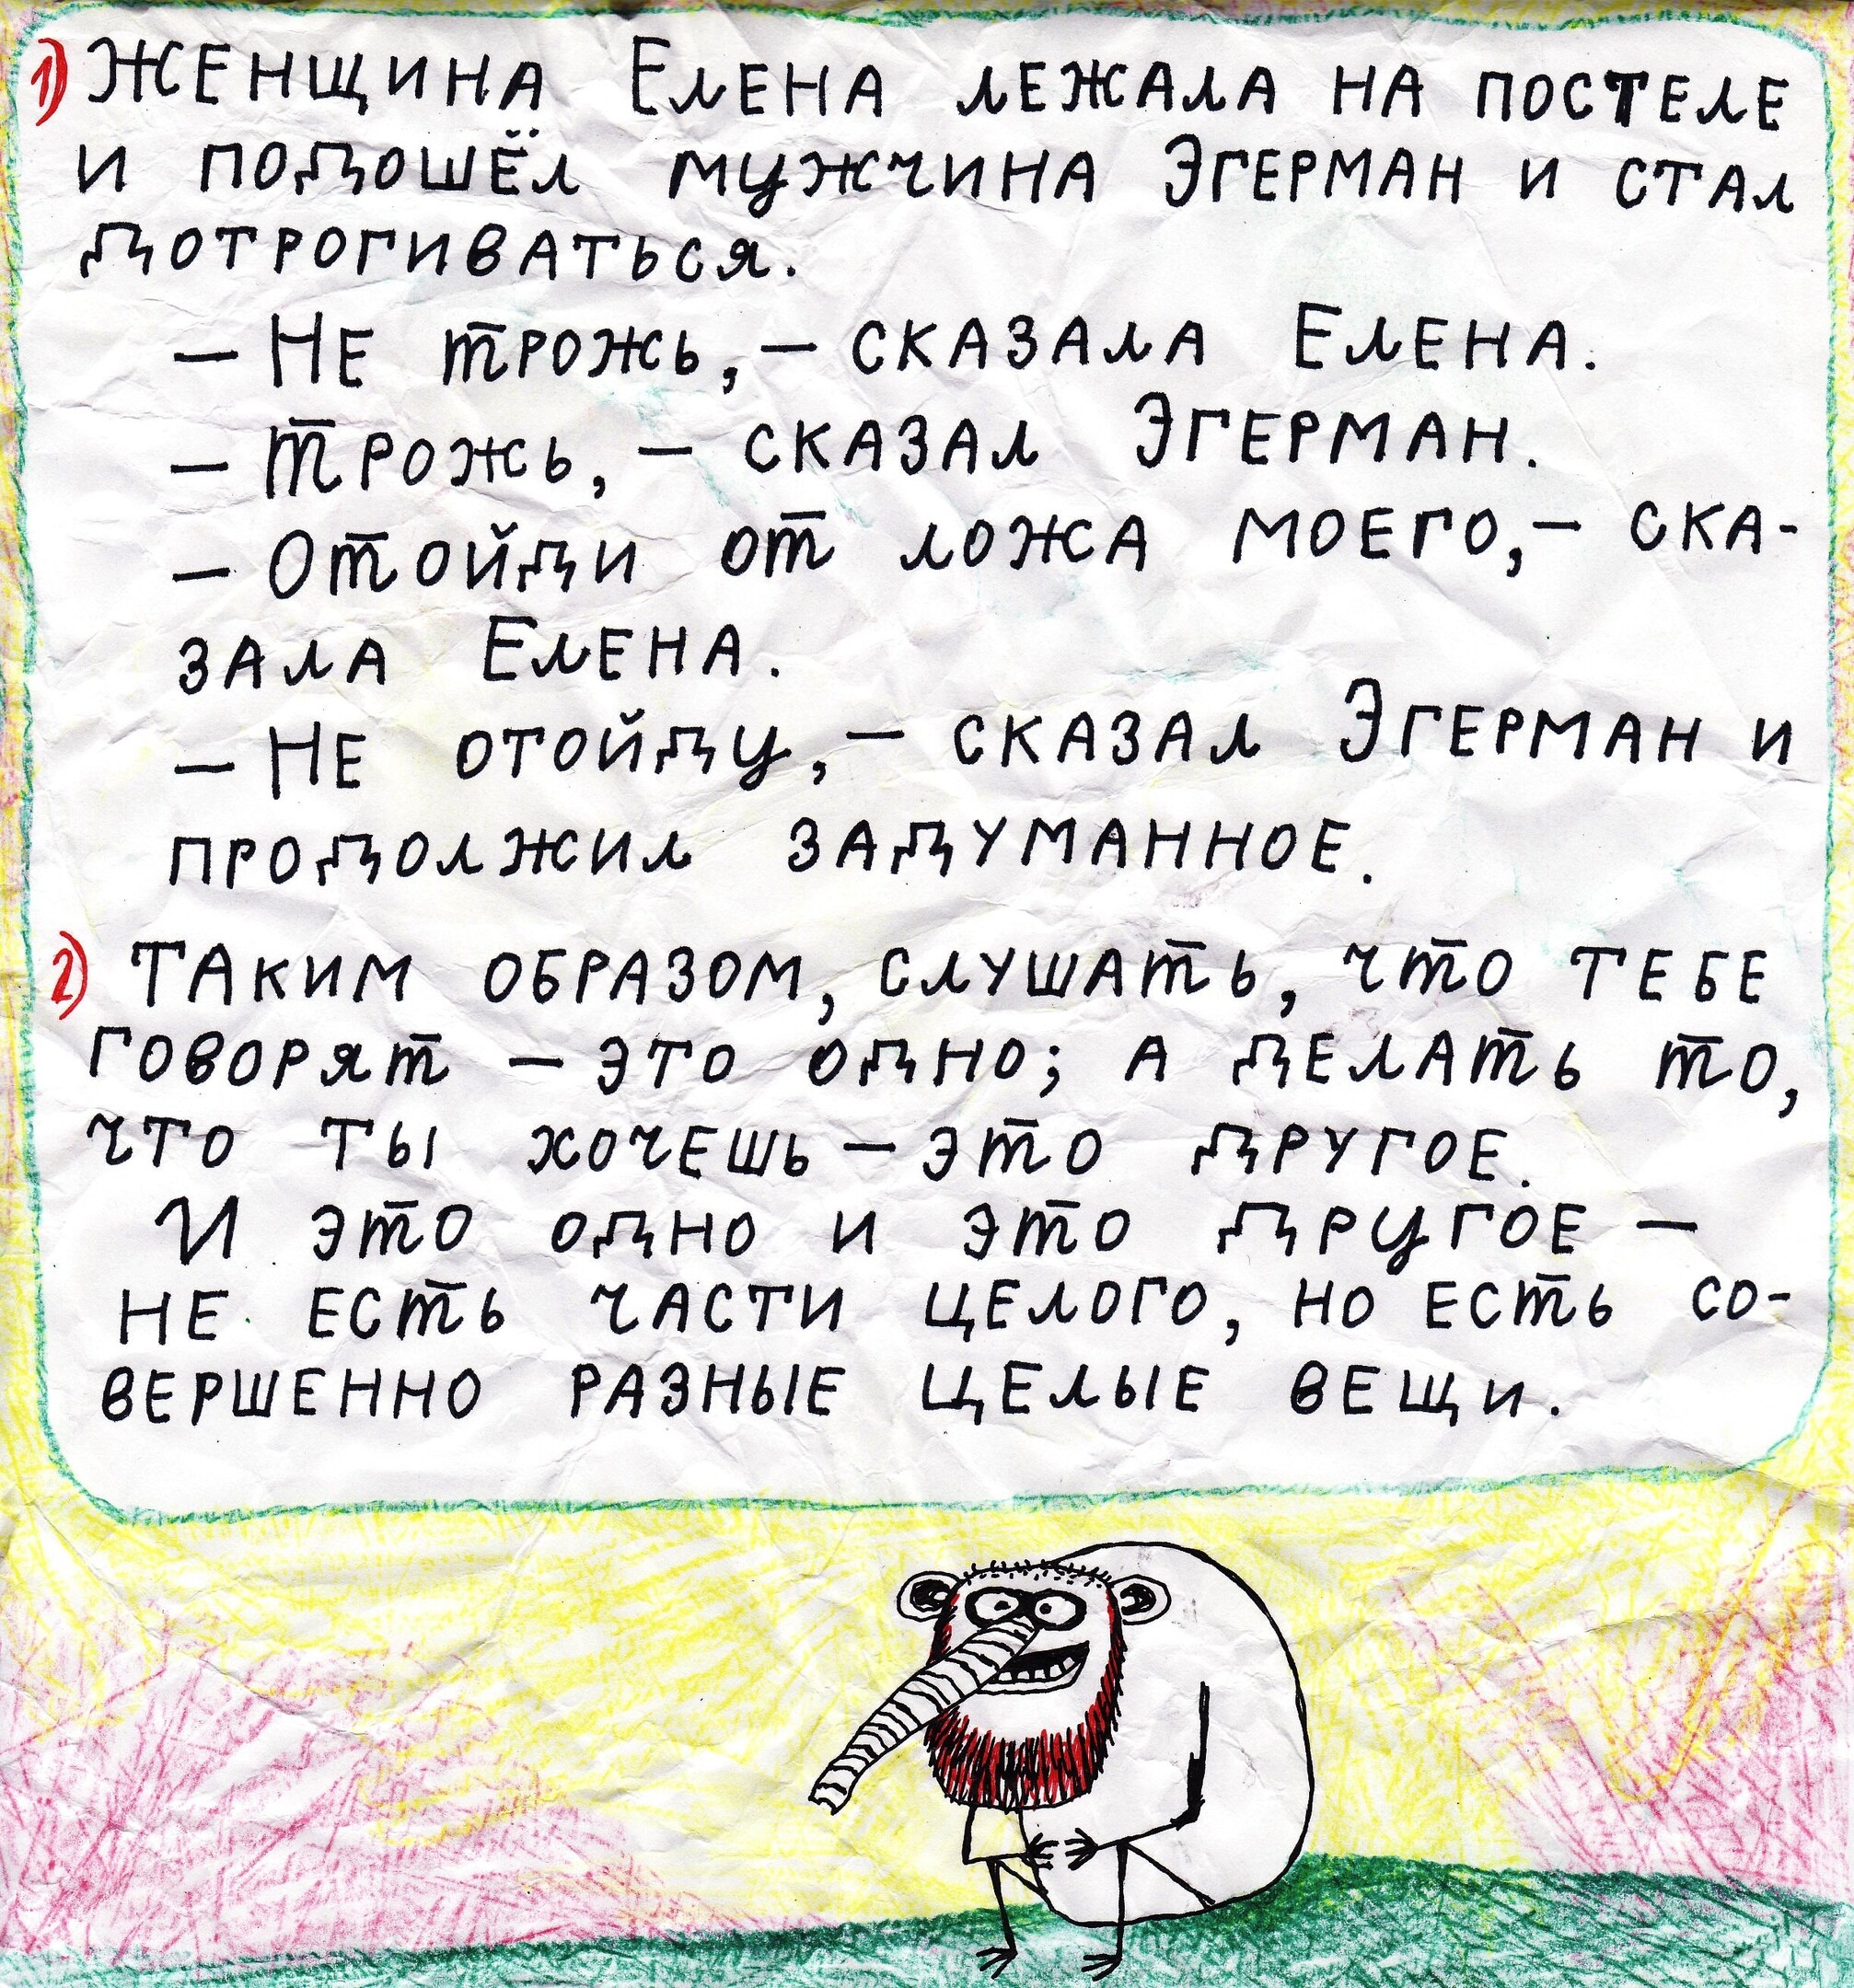 1) Женщина Елена лежала на постеле
и подошёл мужчина Эгерман и стал
дотрогиваться.
— Не трожь, — сказала Елена.
— Трожь, — сказал Эгерман.
— Отойди от ложа моего, — ска-
зала Елена.
— Не отойду, — сказал Эгерман и
продолжил задуманное.
2) Таким образом, слушать, что тебе
говорят — это одно; а делать то,
что ты хочешь — это другое.
И это одно и это другое —
не есть части целого, но есть со-
вершенно разные целые вещи.